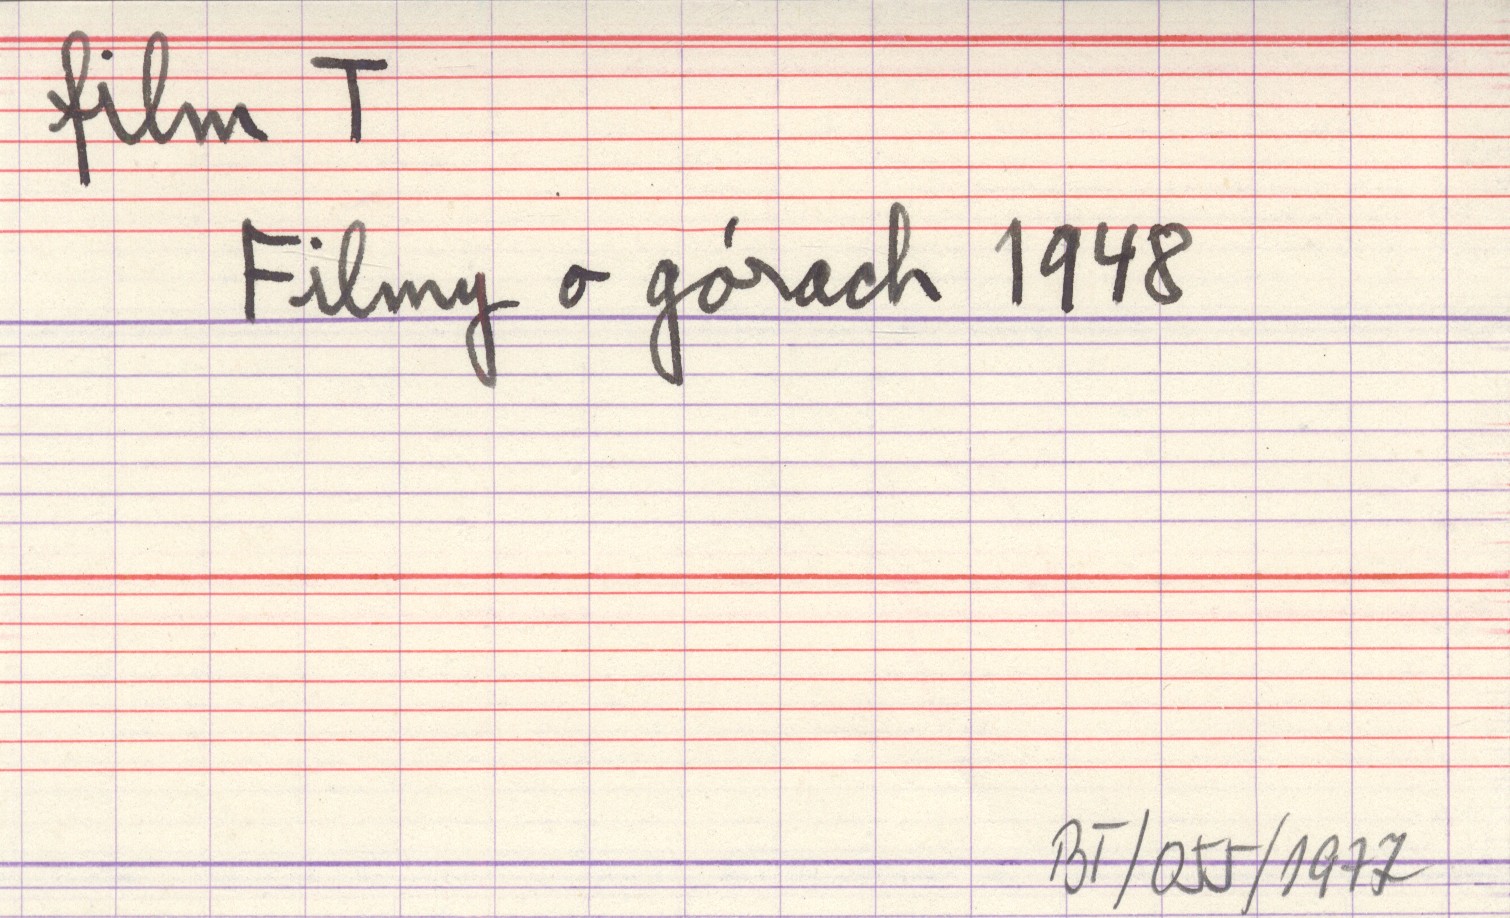 film T
Filmy o górach 1948
BT/055/1977